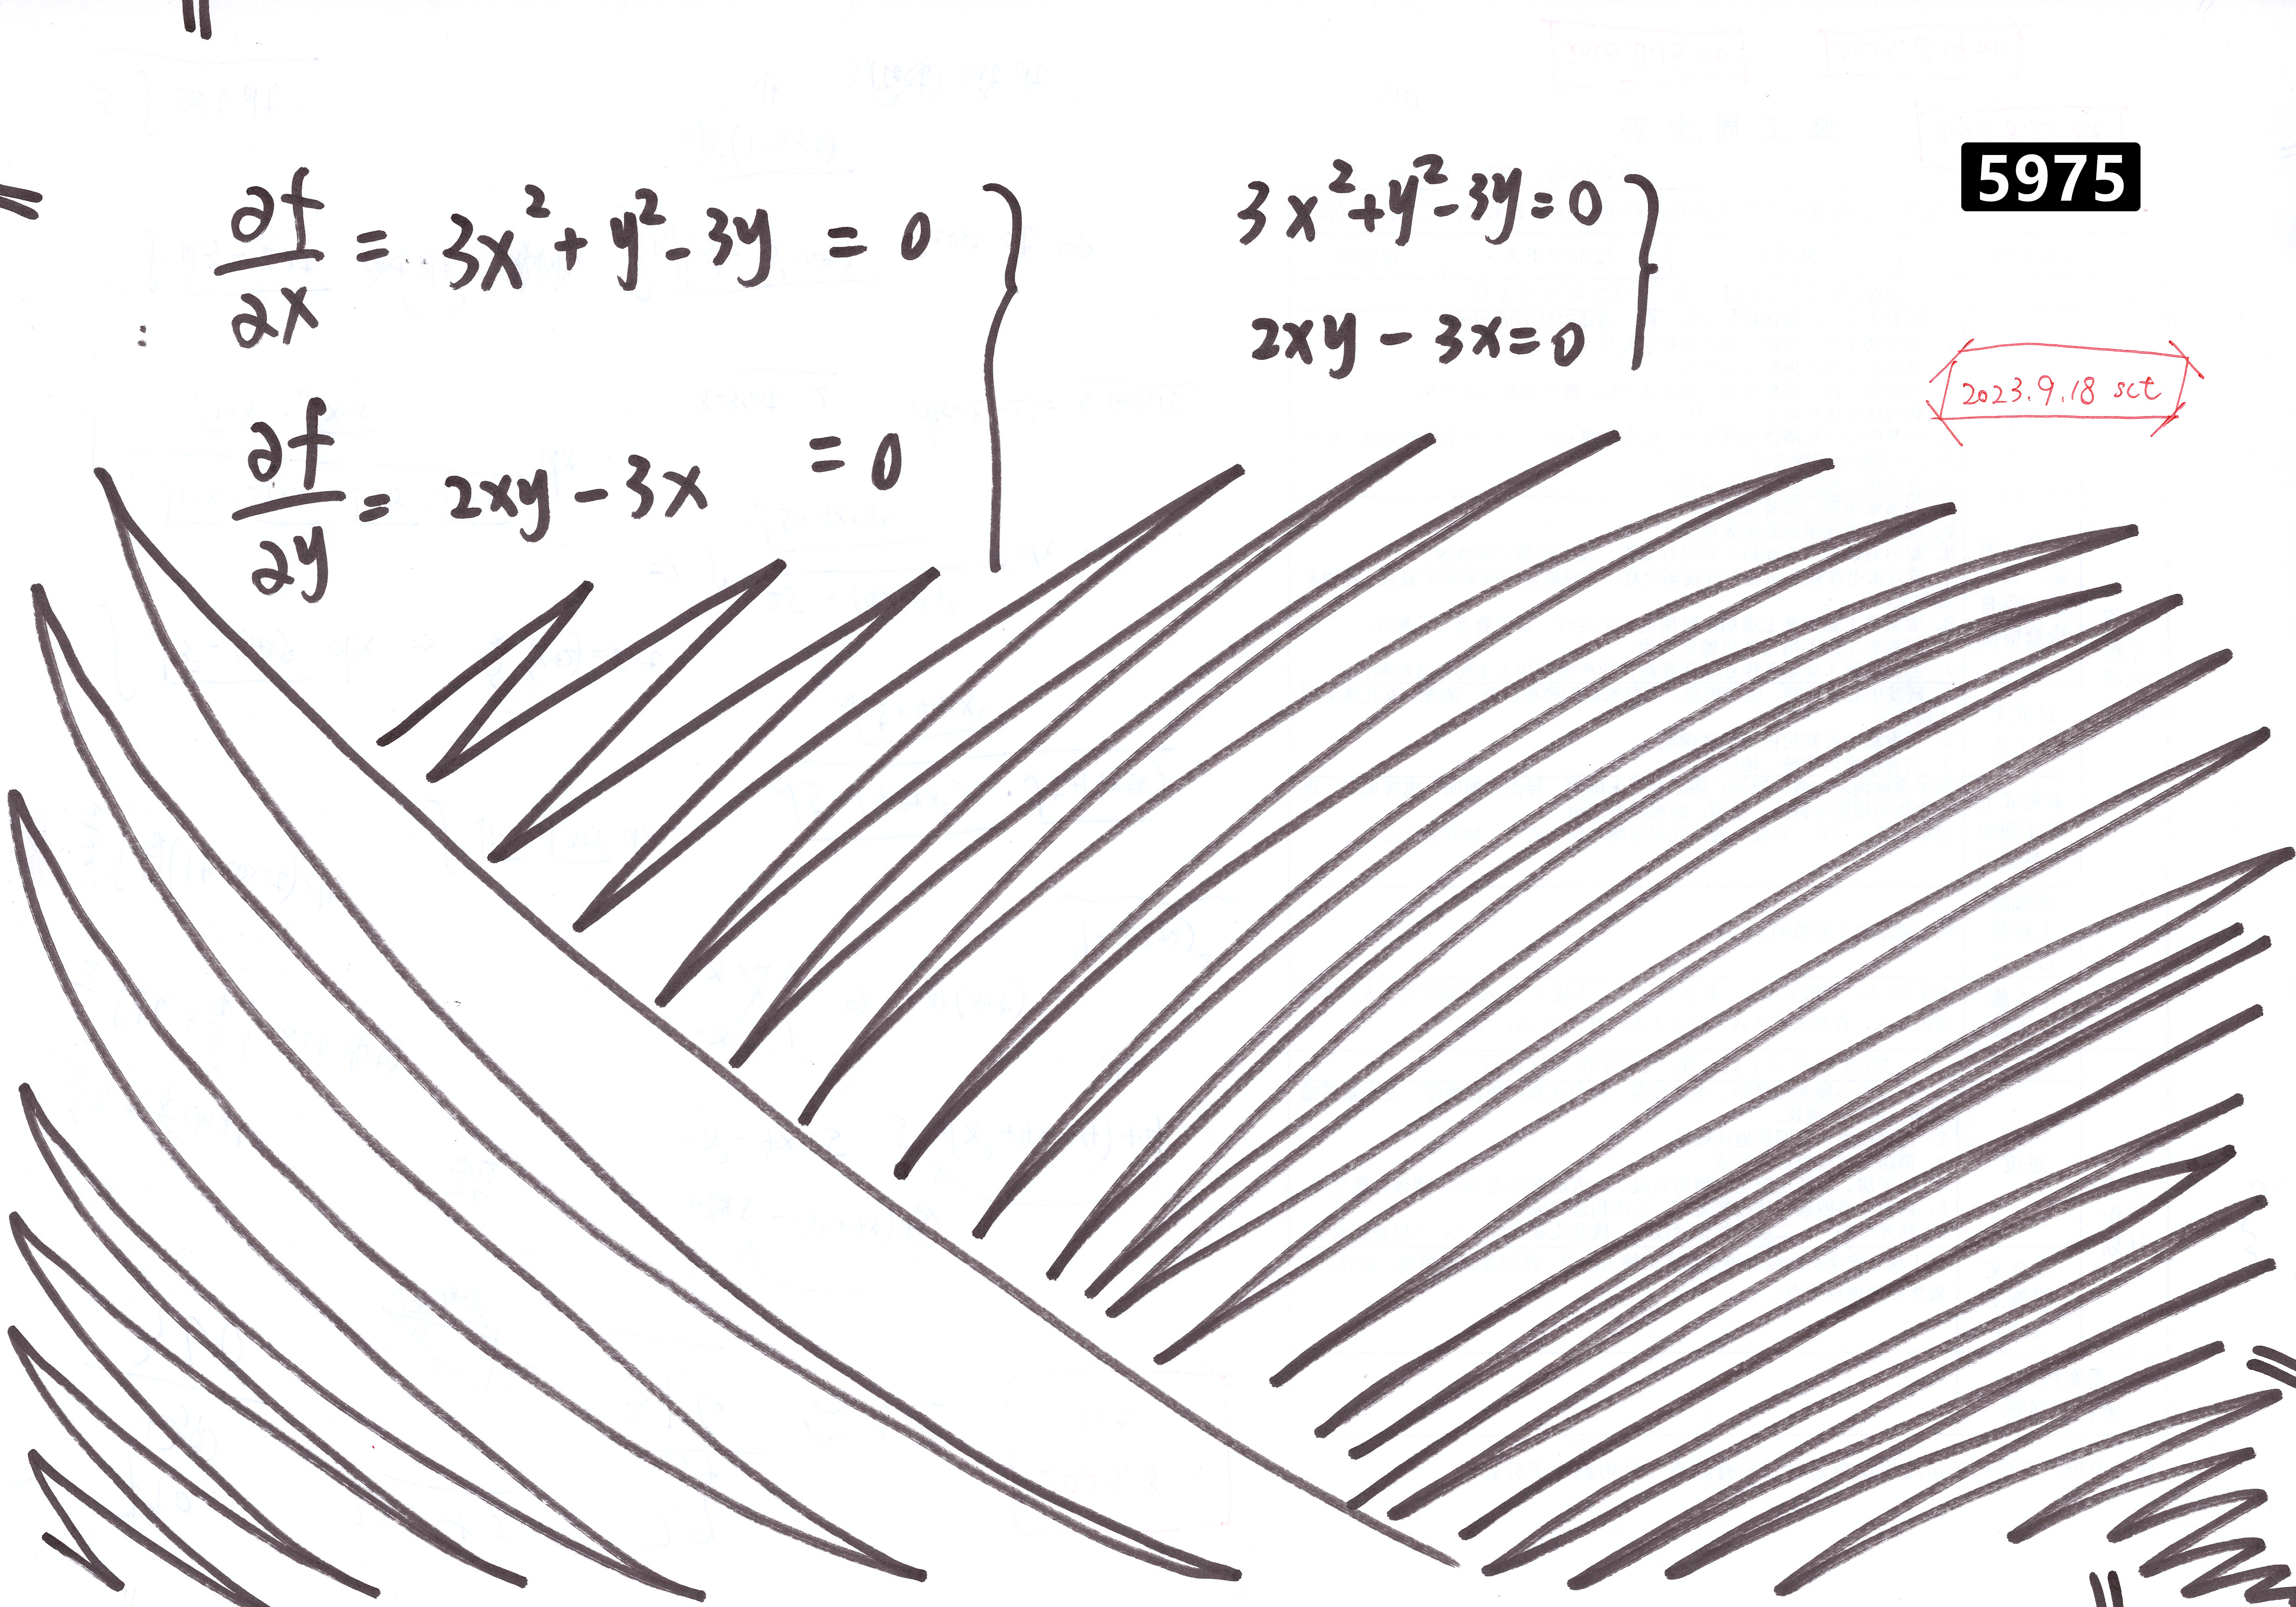 ∂f/∂x = 3x²+y²-3y = 0
∂f/∂y = 2xy-3x = 0
3x²+y²-3y=0
2xy-3x=0
5975
2023.9.18 sct